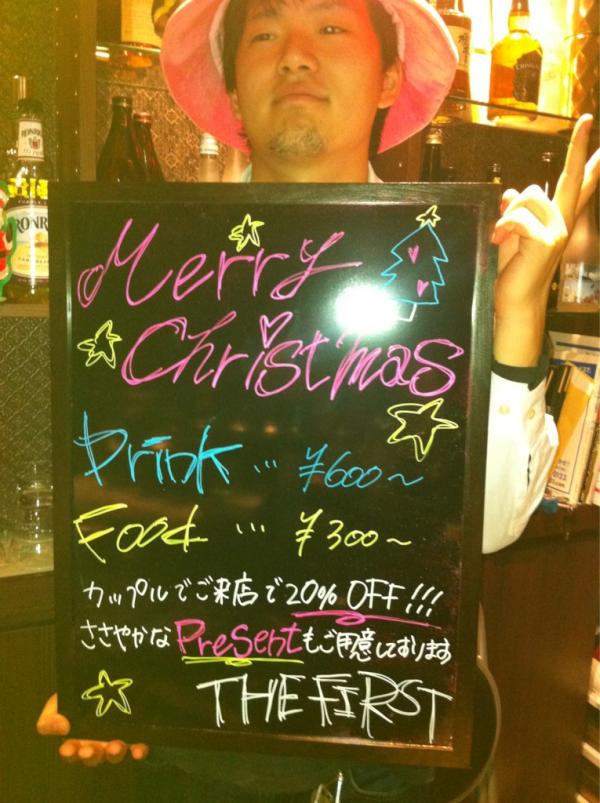 Merry
Christmas
Drink … ¥600～
Food … ¥300～
カップルでご来店で20% OFF!!!
ささやかなPresentもご用意しております
THE FIRST
RONR